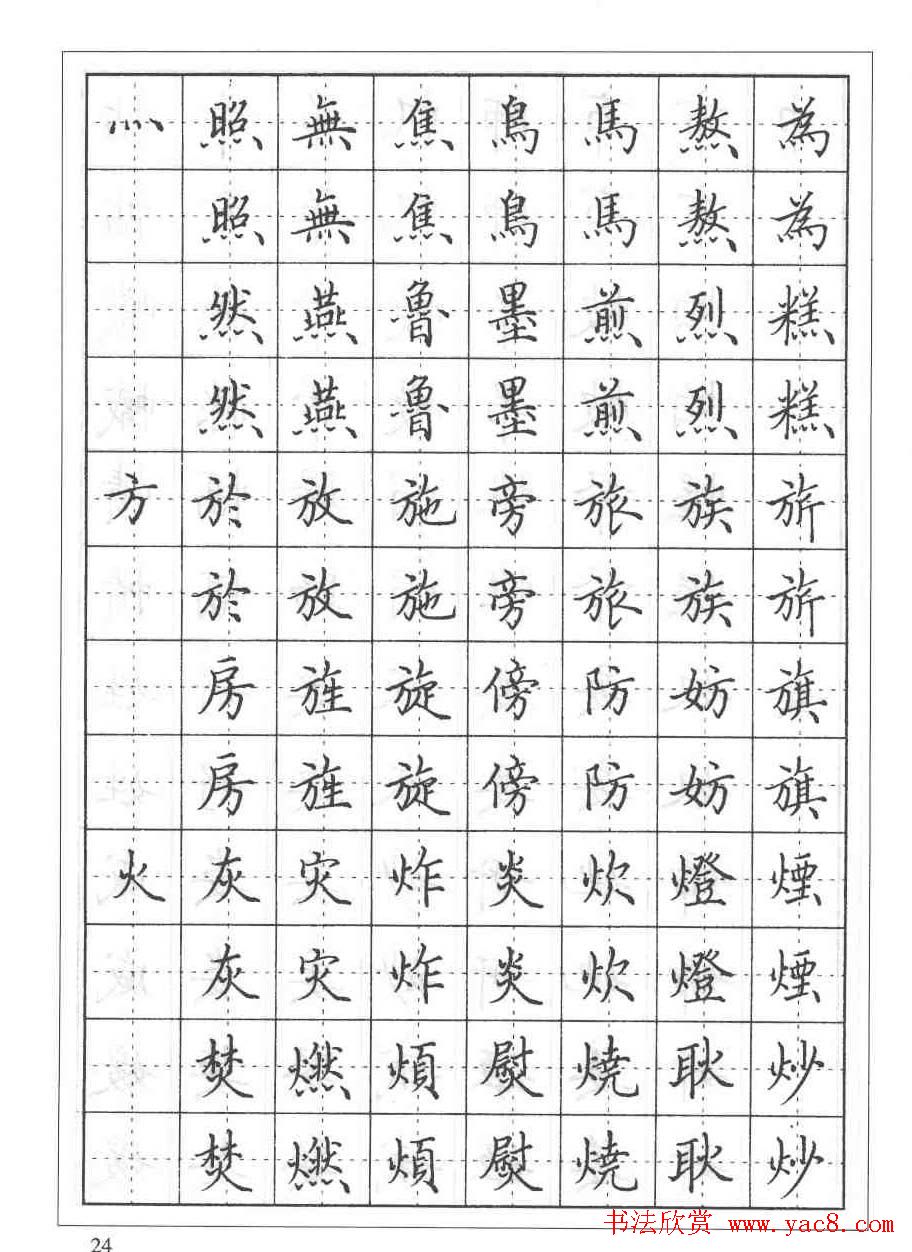 灬照無焦鳥馬熬為
照無焦鳥馬熬為
然燕魯墨煎烈糕
然燕魯墨煎烈糕
方於放施旁旅族旂
於放施旁旅族旂
房旌旋傍防妨旗
房旌旋傍防妨旗
火灰灾炸炎炊燈煙
灰灾炸炎炊燈煙
焚燃煩熨燒耿炒
焚燃煩熨燒耿炒
书法欣赏 www.yac8.com
24